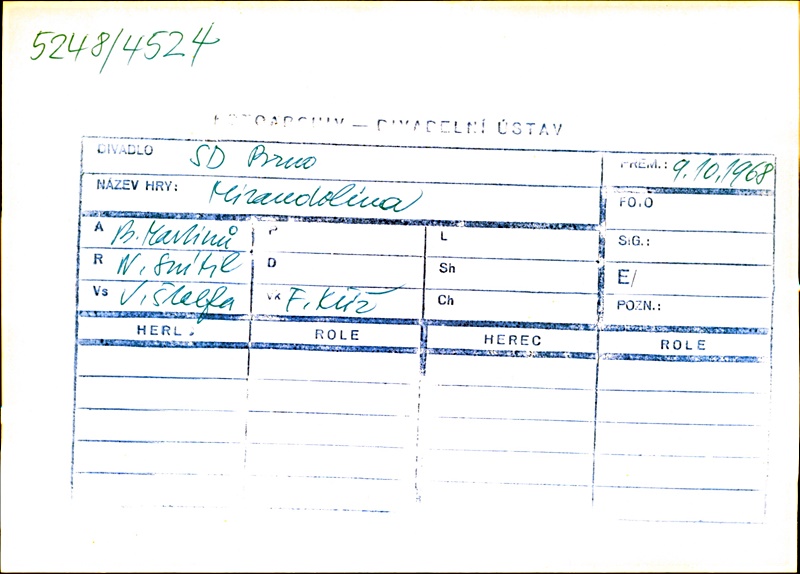 5248/4524
FOTOARCHIV — DIVADELNÍ ÚSTAV
DIVADLO SD Brno
PREM.: 9.10.1968
NÁZEV HRY: Mirandolina
FOTO
A B. Martinů
P
L
SIG.:
R V. Snítil
D
Sh
E/
Vs V. Štolfa
Vk F. Kříž
Ch
POZN.:
HEREC ROLE HEREC ROLE